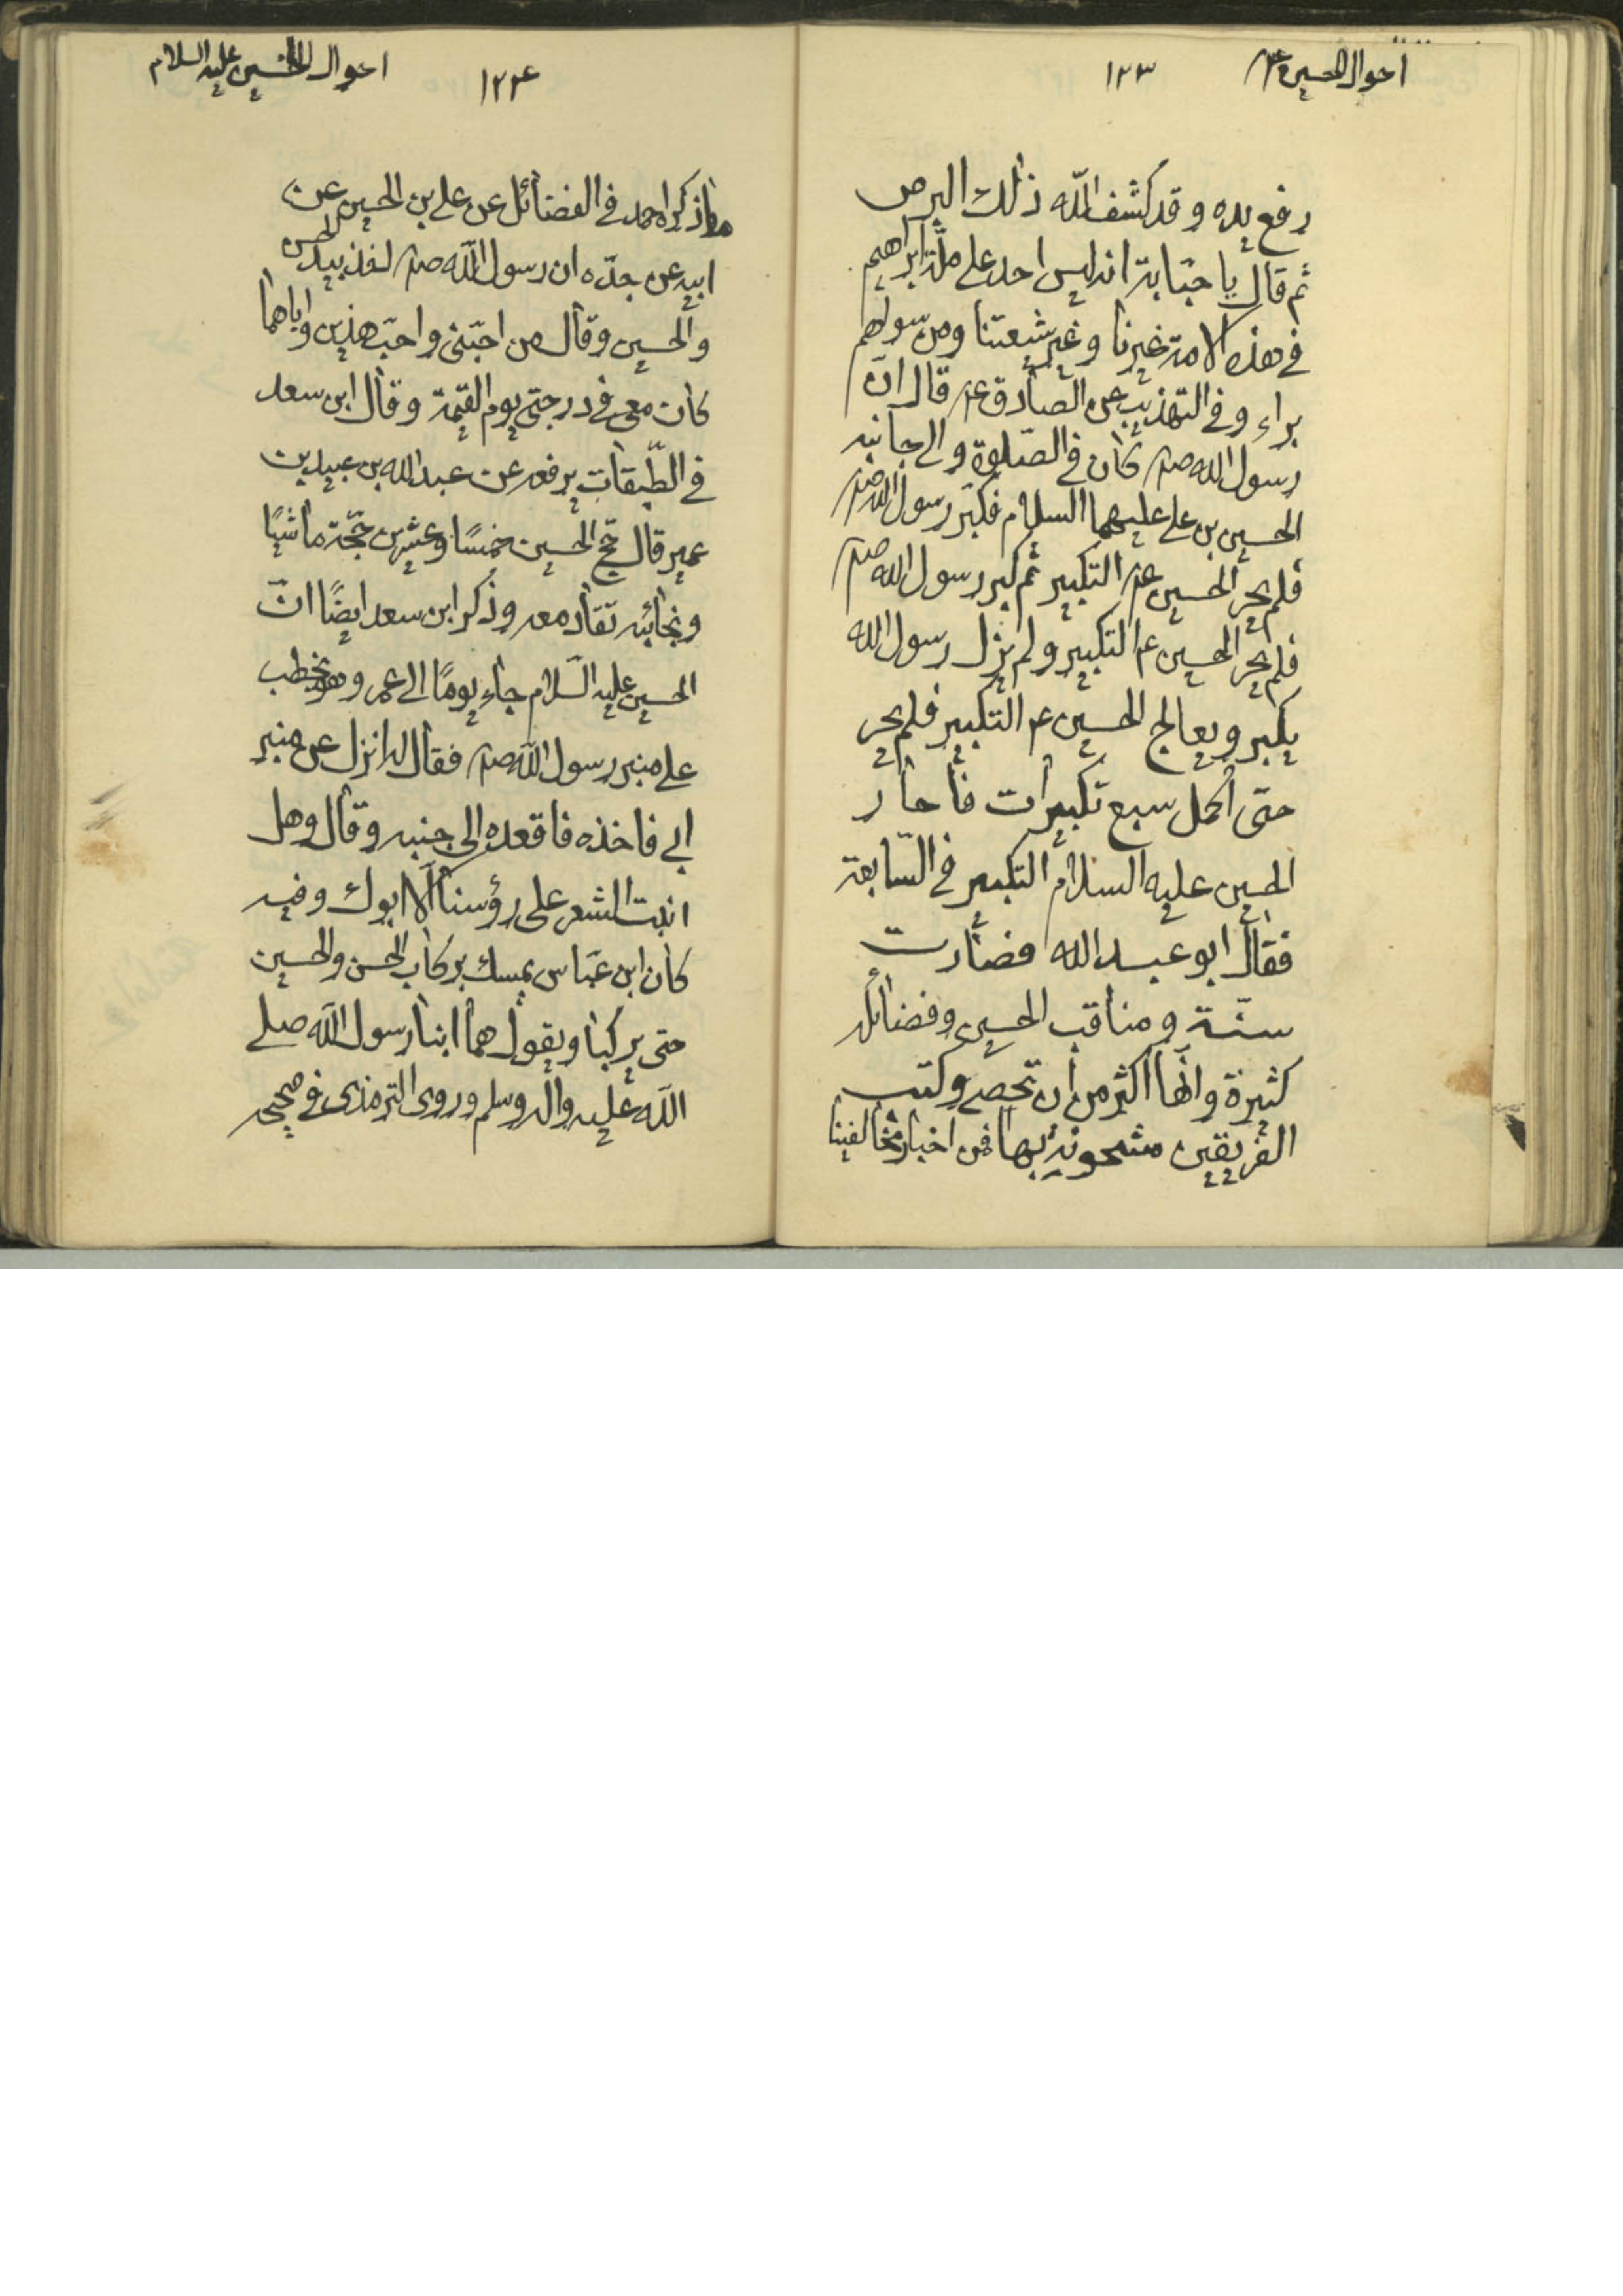 احوال الحسين ع
١٢٣
رفع يده و قد كشف الله ذلك البرص
ثم قال يا حبّابة انه ليس احد على ملّة ابراهيم
فى هذه الامة غيرنا و غير شيعتنا ومن سواهم
براء و فى التهذيب عن الصادق ع قال انّ
رسول الله صم كان فى الصّلوة و الى جانبه
الحسين بن على عليهما السلام فكبّر رسول الله صم
فلم يحر الحسين ع التكبير ثم كبر رسول الله صم
فلم يحر الحسين ع التكبير و لم يزل رسول الله
يكبر و يعالج الحسين ع التكبير فلم يحر
حتى اكمل سبع تكبيرات فأحار
الحسين عليه السلام التكبير فى السّابعة
فقال ابو عبد الله فصارت
سنّة و مناقب الحسين و فضائله
كثيرة و انّها اكثر من ان تحصى و كتب
الفريقين مشحونة بها فمن اخبار مخالفينا
١٢٤
احوال الحسين عليه السلام
ما ذكر احمد فى الفضائل عن على بن الحسين عن
ابيه عن جدّه ان رسول الله صم اخذ بيد الحسن
والحسين و قال من احبّنى و احبّ هذين و اباهما
كان معى فى درجتى يوم القيمة و قال ابن سعد
فى الطّبقات يرفعه عن عبد الله بن عبيد بن
عمير قال حجّ الحسين خمسًا و عشرين حجّة ماشيًا
و نجائبه تقاد معه و ذكر ابن سعد ايضًا انّ
الحسين عليه السّلام جاء يومًا الى عمر و هو يخطب
على منبر رسول الله صم فقال له انزل عن منبر
ابى فاخذه فاقعده الى جنبه و قال و هل
انبت الشعر على رؤسنا الا ابوك و فيه
كان ابن عبّاس يمسك بركاب الحسن والحسين
حتى يركبا و يقول هما ابنا رسول الله صلى
الله عليه واله وسلم و روى الترمذى فى صحيحه